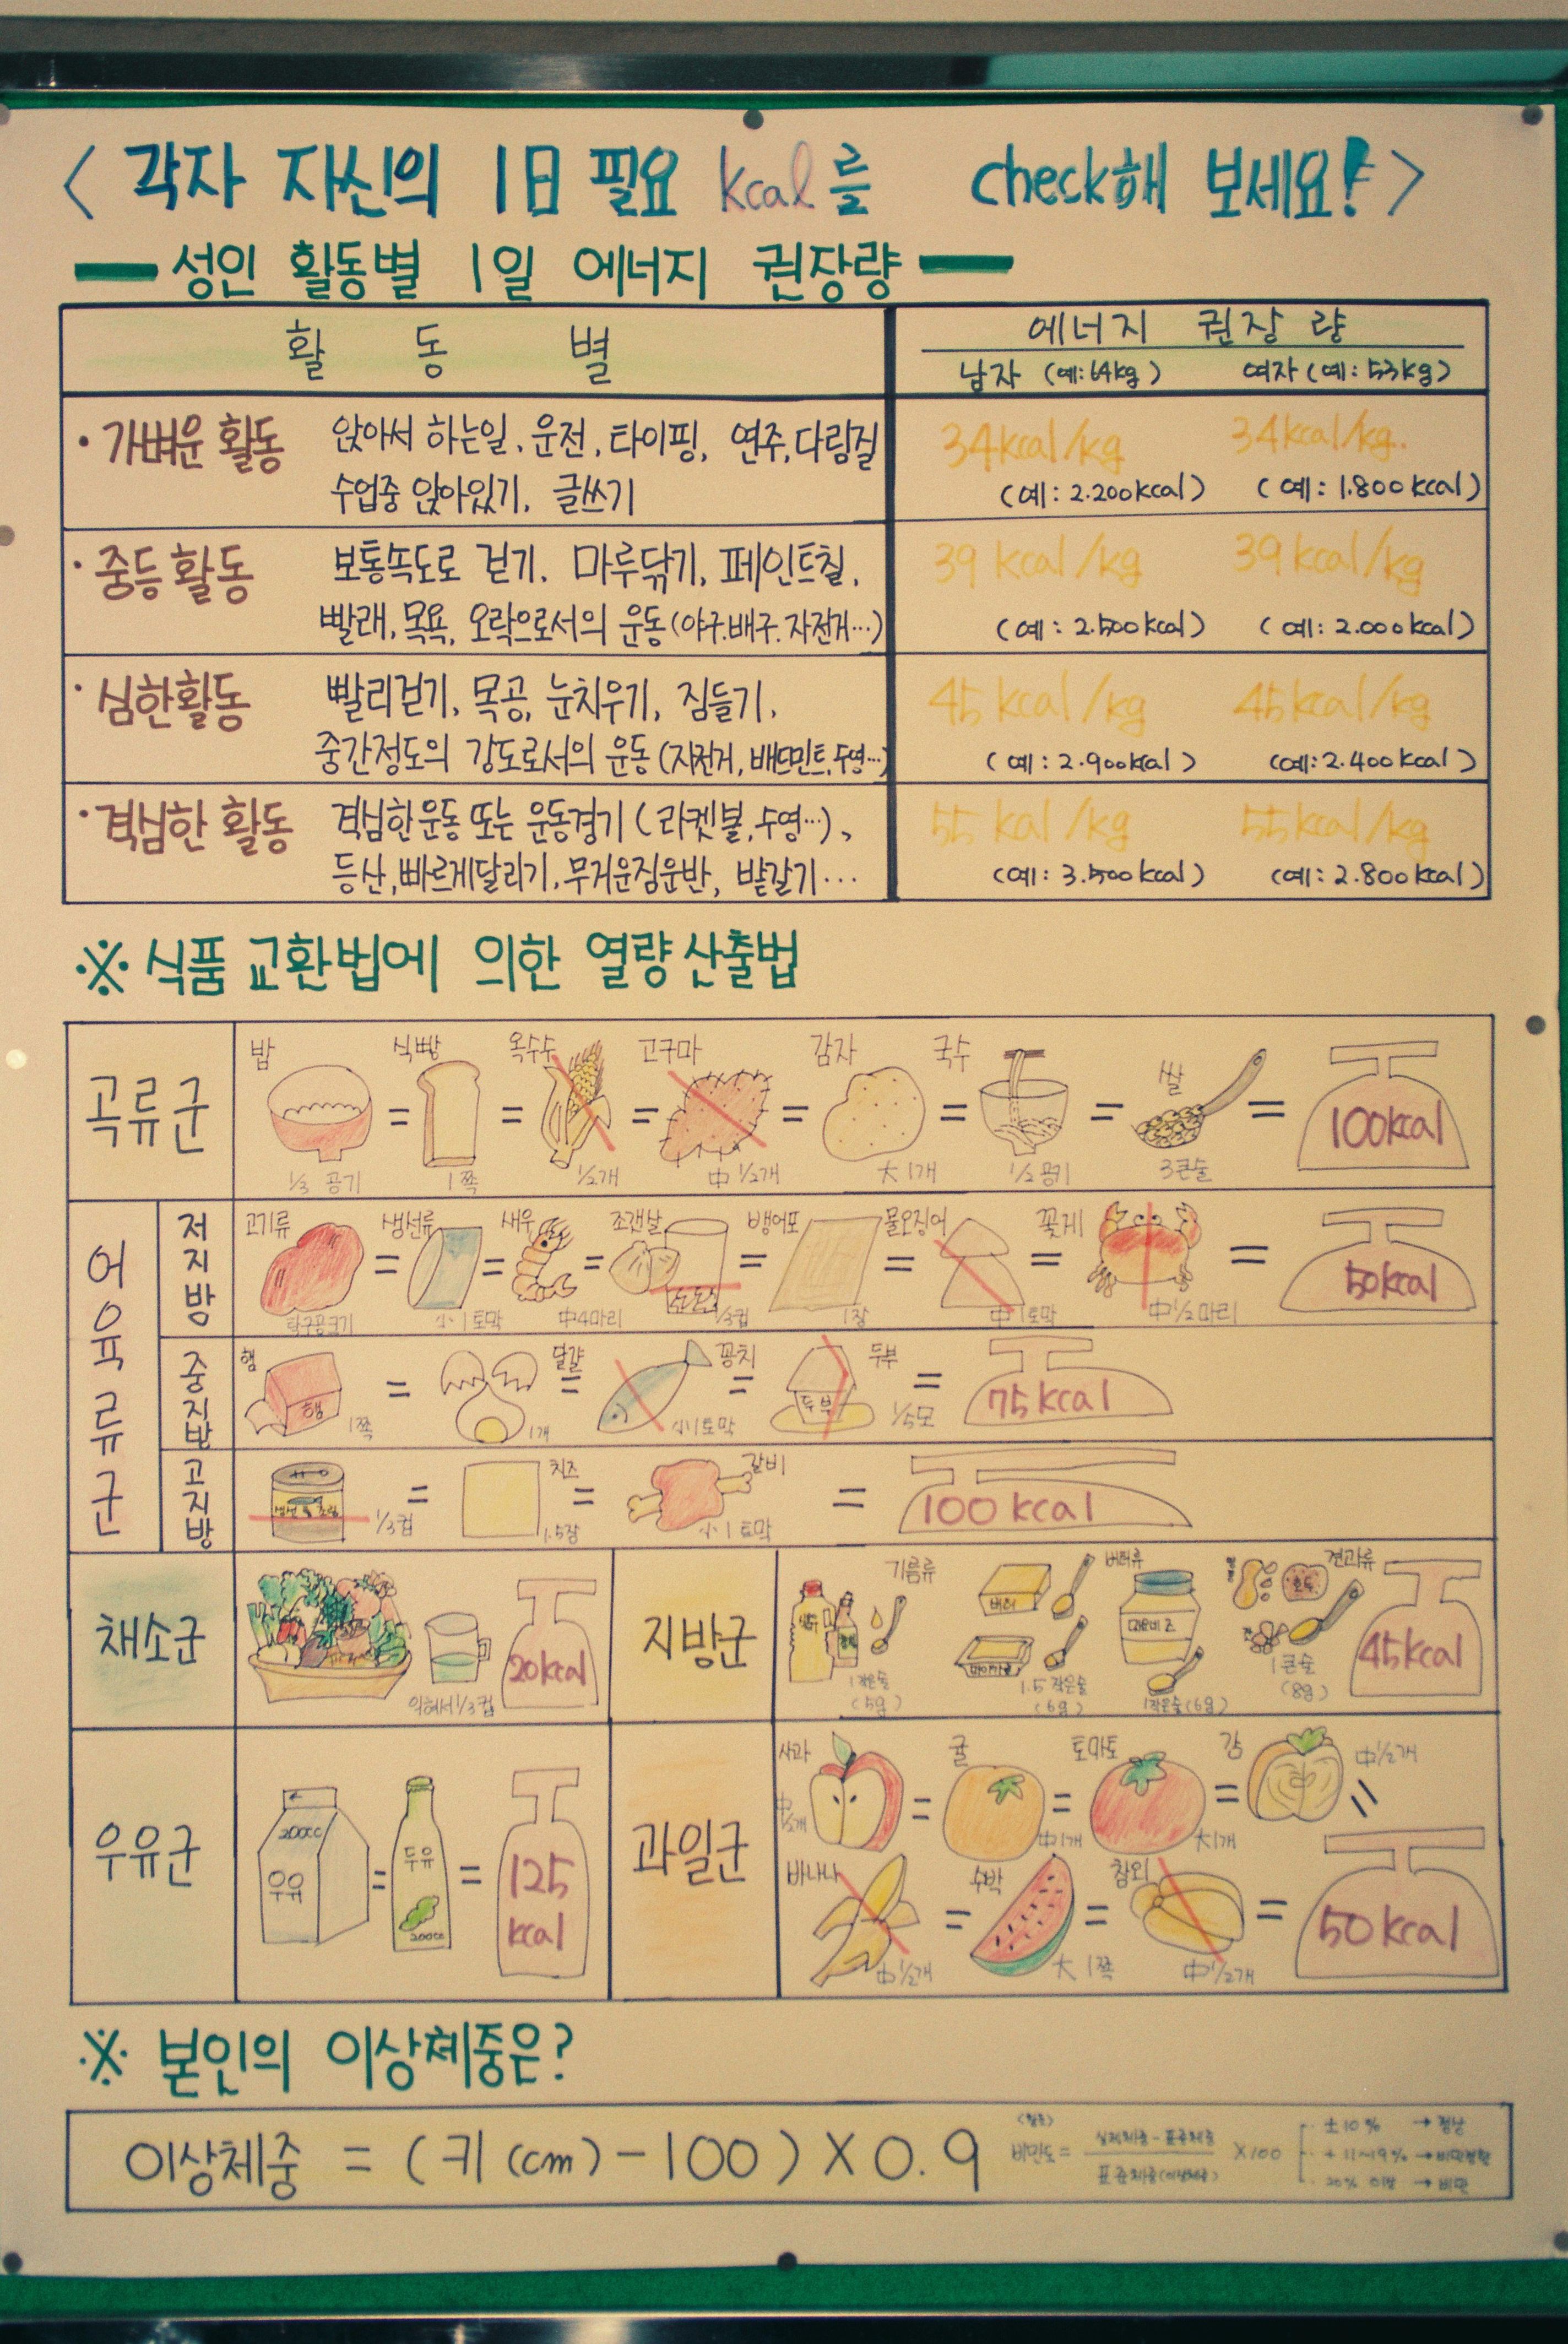 < 각자 자신의 1日 필요 kcal를 check해 보세요! >
성인 활동별 1일 에너지 권장량
활 동 별
에너지 권장량
남자 (예: 64kg) 여자 (예: 53kg)
· 가벼운 활동 앉아서 하는일, 운전, 타이핑, 연주, 다림질
수업중 앉아있기, 글쓰기
34kcal/kg 34kcal/kg.
(예: 2.200kcal) (예: 1.800kcal)
· 중등 활동 보통속도로 걷기, 마루닦기, 페인트칠,
빨래, 목욕, 오락으로서의 운동 (야구.배구.자전거…)
39 kcal/kg 39 kcal/kg
(예: 2.500kcal) (예: 2.000kcal)
· 심한활동 빨리걷기, 목공, 눈치우기, 짐들기,
중간정도의 강도로서의 운동 (자전거, 배드민트, 수영…)
45 kcal/kg 45kcal/kg
(예: 2.900kcal) (예: 2.400kcal)
· 격심한 활동 격심한운동 또는 운동경기 (라켓볼, 수영…),
등산, 빠르게달리기, 무거운짐운반, 밭갈기…
55 kal/kg 55kcal/kg
(예: 3.500kcal) (예: 2.800kcal)
※ 식품 교환법에 의한 열량 산출법
곡류군
밥 식빵 옥수수 고구마 감자 국수 쌀
= = = = = = = 100kcal
1/3 공기 1쪽 1/2개 中 1/2개 大 1개 1/2 공기 3큰술
어육류군
저지방
고기류 생선류 새우 조갯살 뱅어포 물오징어 꽃게
= = = = = = = 50kcal
탁구공크기 小1토막 中4마리 1/3컵 1장 中1토막 中1/2마리
중지방
햄 달걀 꽁치 두부
햄 = = = 두부 = 75kcal
1쪽 1개 小1토막 1/5모
고지방
치즈 갈비
= = = 100 kcal
1/3컵 1.5장 小1토막
채소군
20kcal
익혀서 1/3컵
지방군
기름류 버터류 견과류
버터 마요네즈 호두
45kcal
1작은술 (5g)
1.5작은술 (6g)
1작은술 (6g)
1큰술 (8g)
우유군
200cc 우유 = 두유 200cc = 125 kcal
과일군
사과 귤 토마토 감
= = = =
中1/2개 中1개 大1개 中1/2개
바나나 수박 참외
= = = 50kcal
中1/2개 大 1쪽 中1/2개
※ 본인의 이상체중은?
이상체중 = (키(cm) - 100) X 0.9
비만도 = 실제체중 - 표준체중
표준체중(이상체중)
X100
±10% → 정상
+11~19% →
20% 이상 → 비만